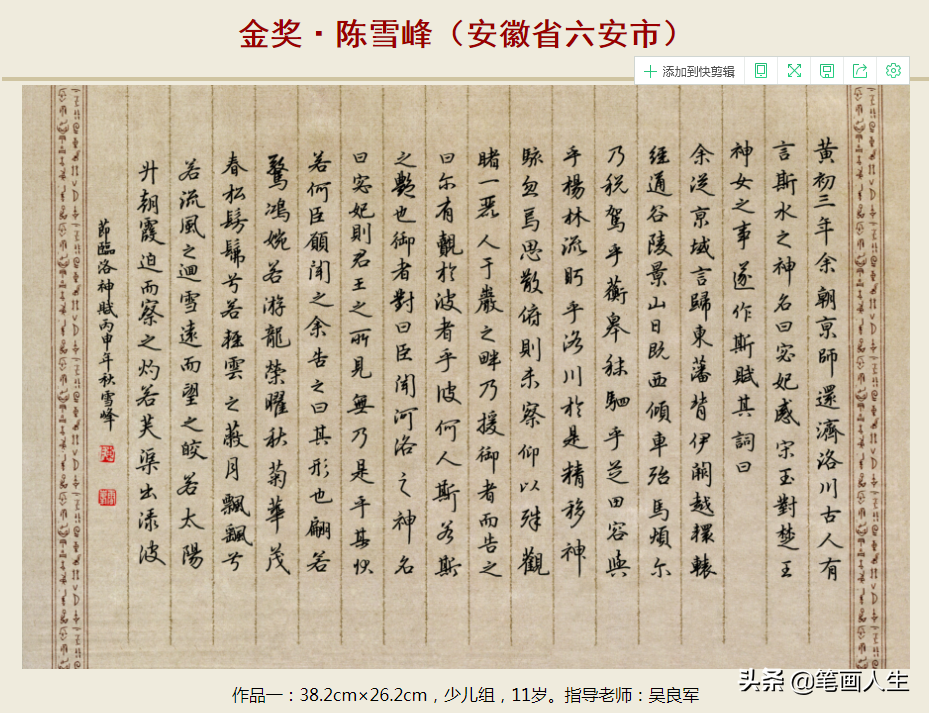 金奖·陈雪峰（安徽省六安市）
添加到快剪辑
黄初三年余朝京師還濟洛川古人有
言斯水之神名曰宓妃感宋玉對楚王
神女之事遂作斯賦其詞曰
余従京域言歸東藩背伊闕越轘轅
經通谷陵景山日既西傾車殆馬煩尔
乃税駕乎蘅皋秣駟乎芝田容與
乎楊林流眄乎洛川於是精移神
駭忽焉思散俯則未察仰以殊觀
睹一麗人于巖之畔乃援御者而告之
曰尔有覿於彼者乎彼何人斯若斯
之艷也御者對曰臣聞河洛之神名
曰宓妃則君王之所見無乃是乎其狀
若何臣願聞之余告之曰其形也翩若
驚鴻婉若游龍榮曜秋菊華茂
春松髣髴兮若輕雲之蔽月飄飄兮
若流風之迴雪遠而望之皎若太陽
升朝霞迫而察之灼若芙渠出渌波
節臨洛神賦丙申年秋雪峰
作品一：38.2cm×26.2cm，少儿组，11岁。指导老师：吴良军
头条 @笔画人生